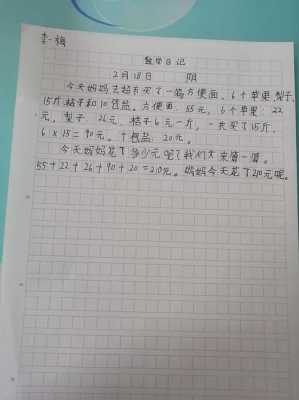 李梅
数学日记
2月18日 阴
今天妈妈去超市买了一箱方便面,6个苹果,梨子,
15斤桔子和10包盐。方便面 55元,6个苹果 22
元,梨子 26元,桔子6元一斤,一共买了15斤,
6×15=90元。十包盐 20元。
今天妈妈花了多少元呢?我们大家来算一算。
55+22+26+90+20=210元。妈妈今天花了210元呢。